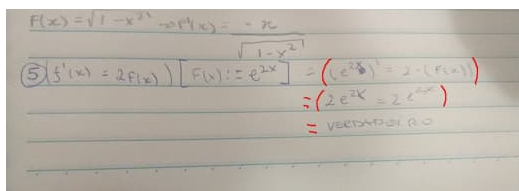 F(x) = √1-x² → F'(x) = -x / √1-x²
⑤ (f'(x) = 2f(x)) [F(x) := e^2x] = ((e^2x)' = 2·(f(x)))
= (2e^2x = 2e^2x)
= VERDADEIRO